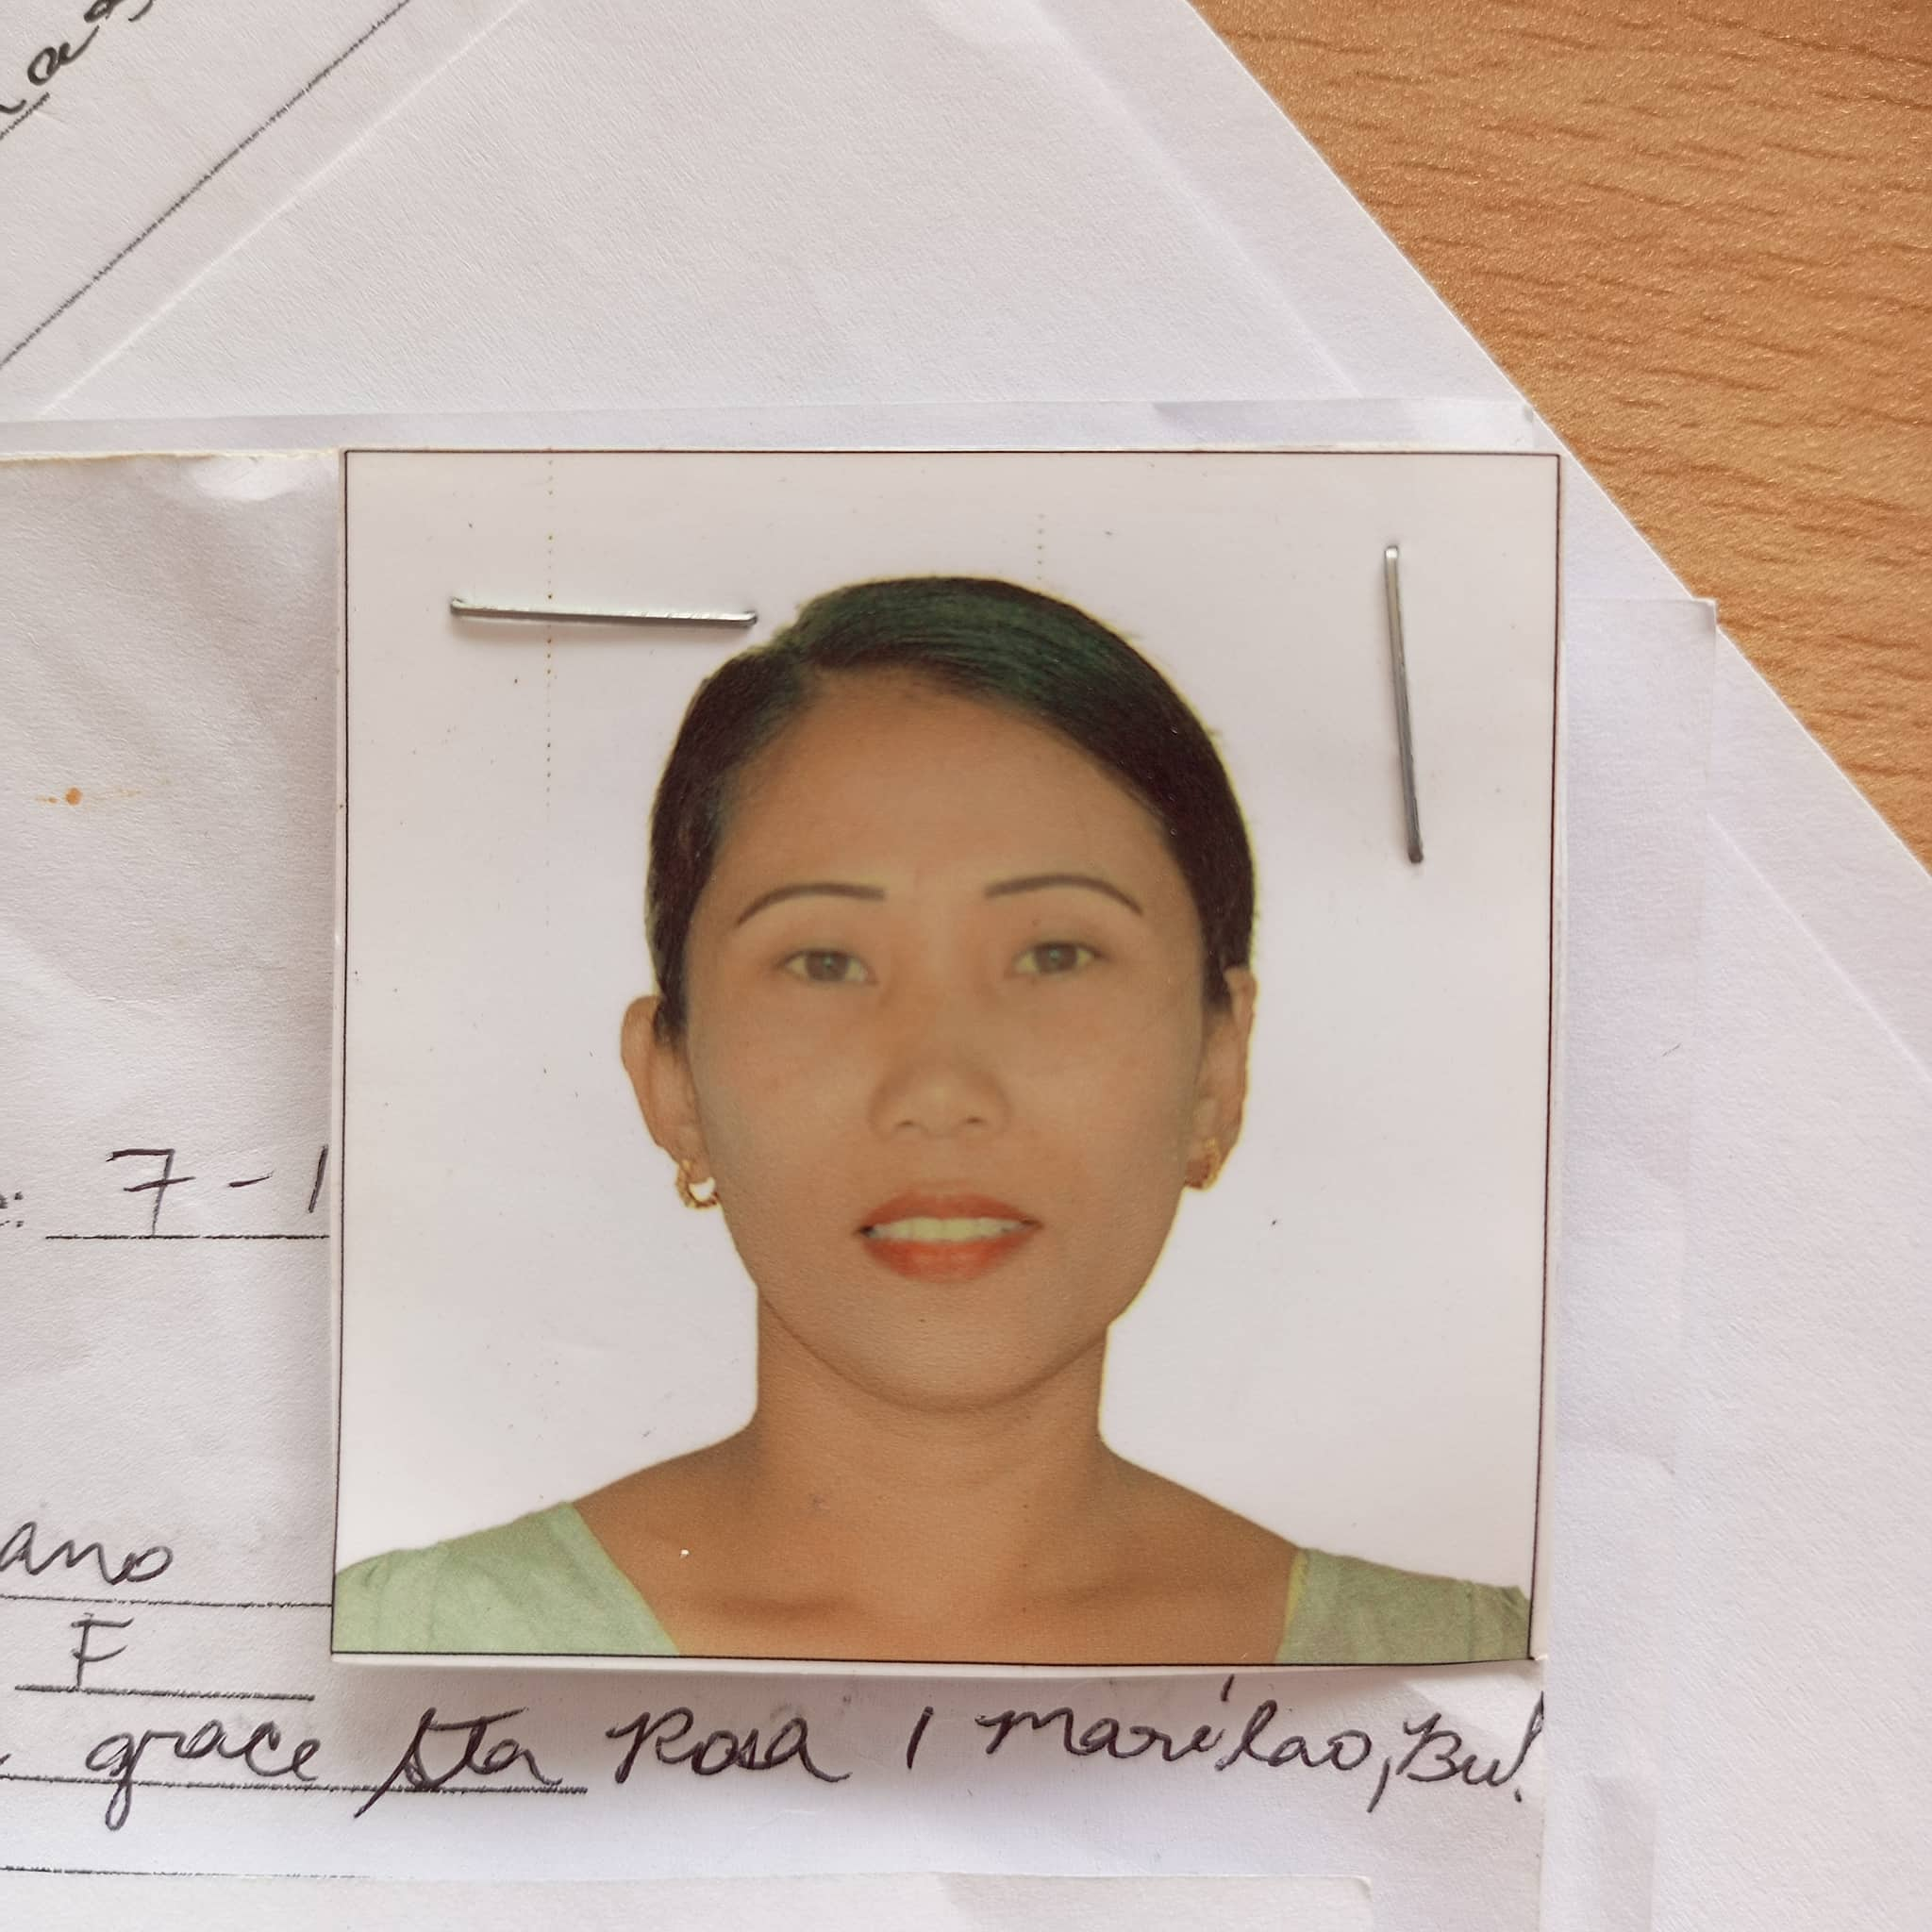 7-1
ano
F
grace Sta Rosa 1 Marilao, Bul.